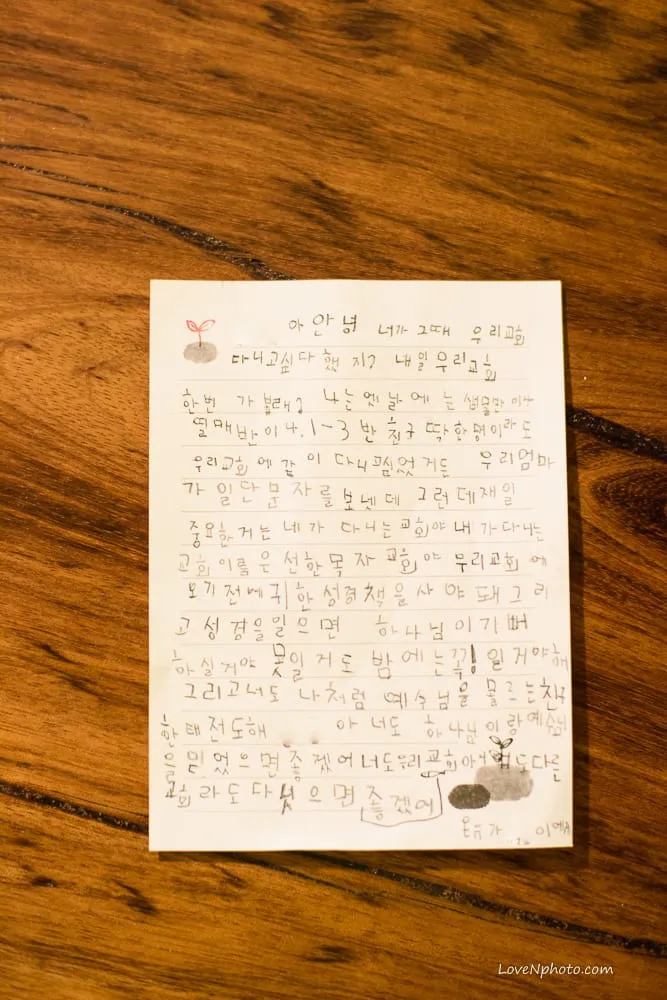 아 안녕 너가 그때 우리교회
다니고싶다 했지? 내일 우리교회
한번 가볼래? 나는 옛날에는 샘물반이나
띨매반이나. 1-3반 친구 딱 한명이라도
우리교회에 같이 다니고싶었거든 우리엄마
가 일단 문자를 보넨데 그런데재일
중요한거는 네가 다니는교회야 내가다니는
교회이름은 선한목자 교회야 우리교회에
오기전메 귀한성경책을사야돼 그리
고 성경을읽으면 하나님이기뻐
하실거야 못읽거도 밤에는꼭! 읽거야해
그리고너도 나처럼 예수님을 모르는친구
한태전도해 아 너도 하나님이랑예수님
을 믿었으면좋겠어 너도우리교회아니여도다른
교회라도다녔으면 좋겠어
온유가
LoveNphoto.com